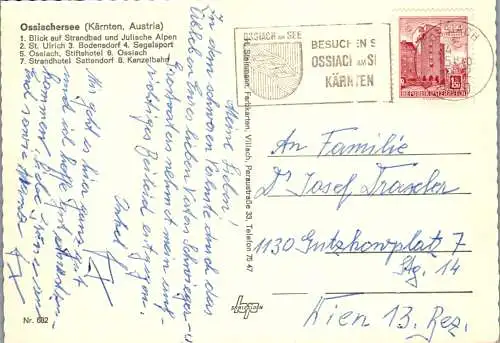 Ossiachersee (Kärnten, Austria)
1. Blick auf Strandbad und Julische Alpen
2. St. Ulrich 3. Bodensdorf 4. Segelsport
5. Ossiach, Stiftshotel 6. Ossiach
7. Strandhotel Sattendorf 8. Kanzelbahn
OSSIACH AM SEE
BESUCHEN S
OSSIACH AM SE
KÄRNTEN
REPUBLIK ÖSTERREICH
Meine Lieben!
In dem schweren Verluste durch das
Ableben Eures lieben Vaters Schwieger- u
Großvaters nehmt mein auf-
richtiges Beileid entgegen.
Mir geht es hier ganz gut
und ich hoffe
kommen. Liebe Grüße
und
H. Steinmann, Farbkarten, Villach, Peraustraße 33, Telefon 75 47
An Familie
Dr Josef Draxler
1130 Gutzkowplatz 7
Stg. 14
Wien 13. Bez.
Nr. 602